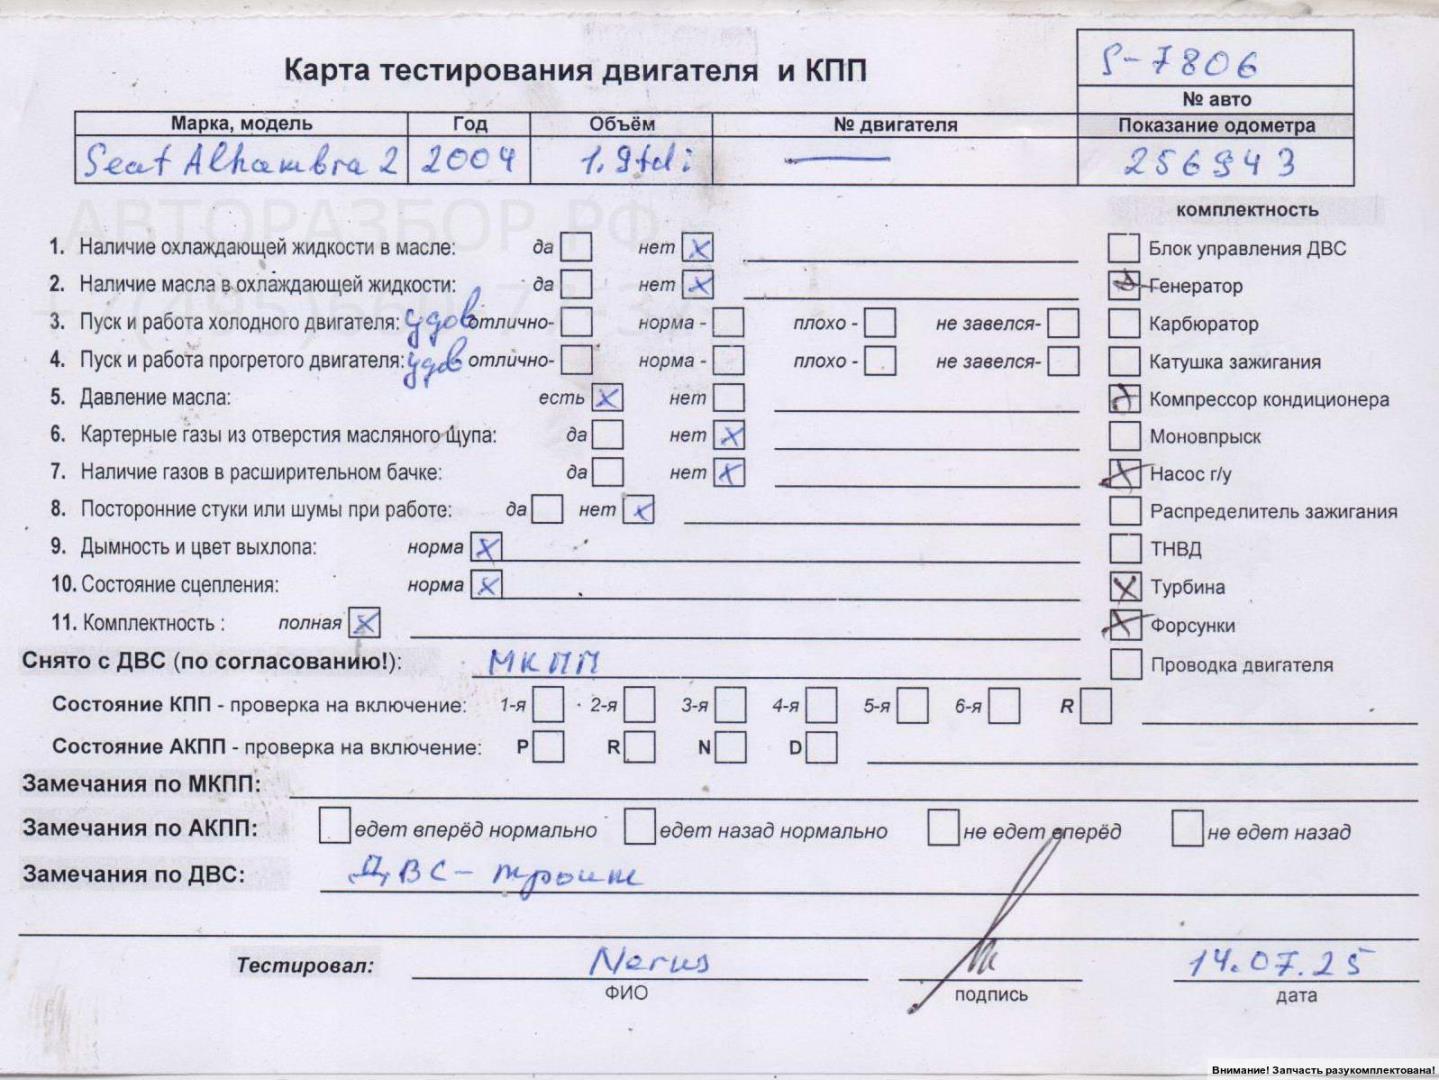 Карта тестирования двигателя и КПП
S-7806
№ авто
Марка, модель Год Объём № двигателя Показание одометра
Seat Alhambra 2 2004 1.9tdi — 256943
АВТОРАЗБОР.РФ
комплектность
1. Наличие охлаждающей жидкости в масле: да нет x Блок управления ДВС
2. Наличие масла в охлаждающей жидкости: да нет x Генератор
3. Пуск и работа холодного двигателя: удов отлично- норма - плохо - не завелся- Карбюратор
4. Пуск и работа прогретого двигателя: удов отлично- норма - плохо - не завелся- Катушка зажигания
5. Давление масла: есть x нет Компрессор кондиционера
6. Картерные газы из отверстия масляного щупа: да нет x Моновпрыск
7. Наличие газов в расширительном бачке: да нет x Насос г/у
8. Посторонние стуки или шумы при работе: да нет x Распределитель зажигания
9. Дымность и цвет выхлопа: норма x ТНВД
10. Состояние сцепления: норма x x Турбина
11. Комплектность : полная x x Форсунки
Снято с ДВС (по согласованию!): МКПП Проводка двигателя
Состояние КПП - проверка на включение: 1-я 2-я 3-я 4-я 5-я 6-я R
Состояние АКПП - проверка на включение: P R N D
Замечания по МКПП:
Замечания по АКПП: едет вперёд нормально едет назад нормально не едет вперёд не едет назад
Замечания по ДВС: ДВС - троит
Тестировал: 14.07.25
ФИО подпись дата
Внимание! Запчасть разукомплектована!